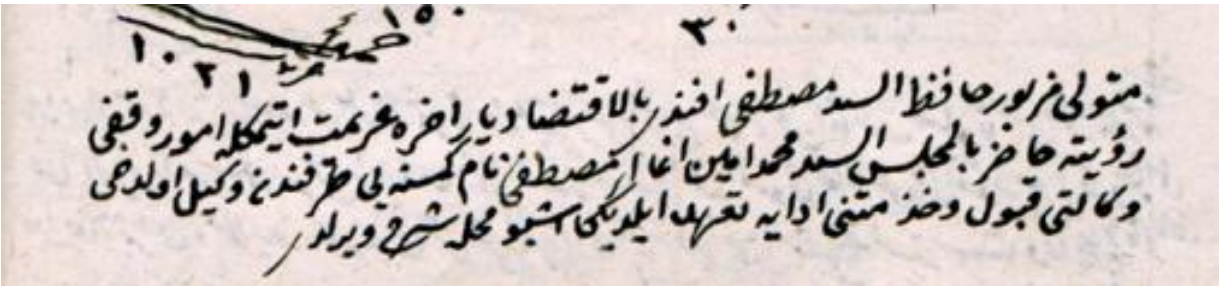 ١٥٠
٣٠
١٠ ٢١
متولی مزبور حافظ السید مصطفی افندی بالاقتضا دیار اخره عزیمت ایتمکله امور وقفی
رؤیته حاضر بالمجلس السید محمد امین اغا ابن مصطفی نام کمسنه یی طرفندن وکیل اولدخی
وکالتی قبول وخدمتنی ادایه تعهد ایلدیکی اشبو محله شرح ویرلدی